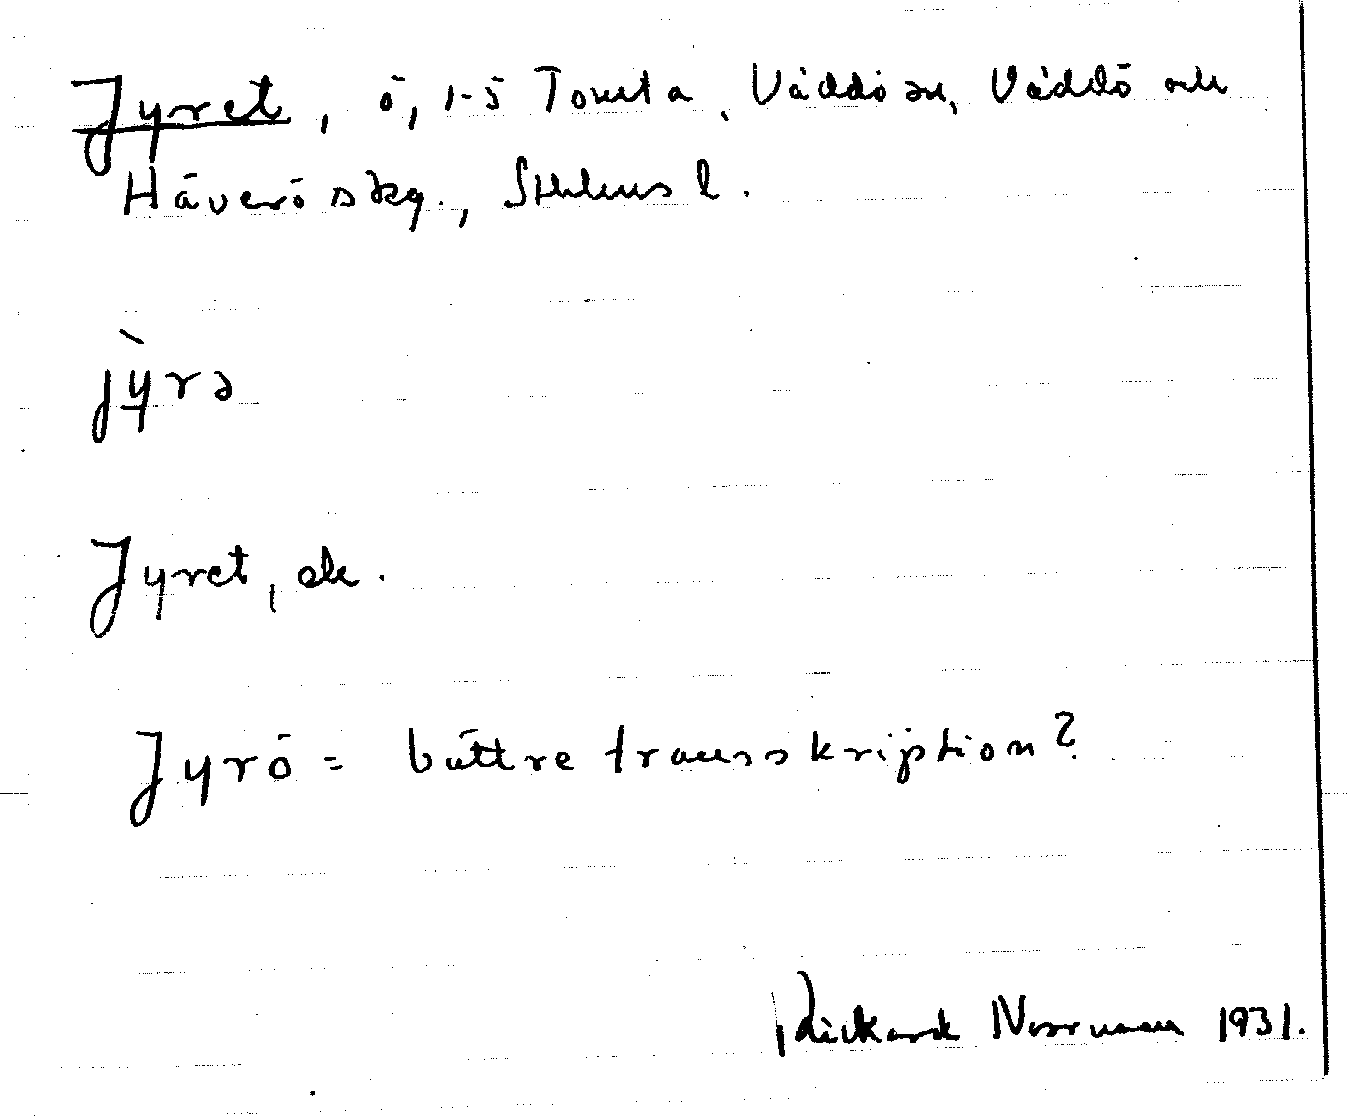 Jyret, ö, 1-5 Tomta, Väddö sn, Väddö och
Häverö skg., Sthlms l.
jỳ̠rə
Jyret, ak.
Jyrö = bättre transskription?
Rickard Norrman 1931.